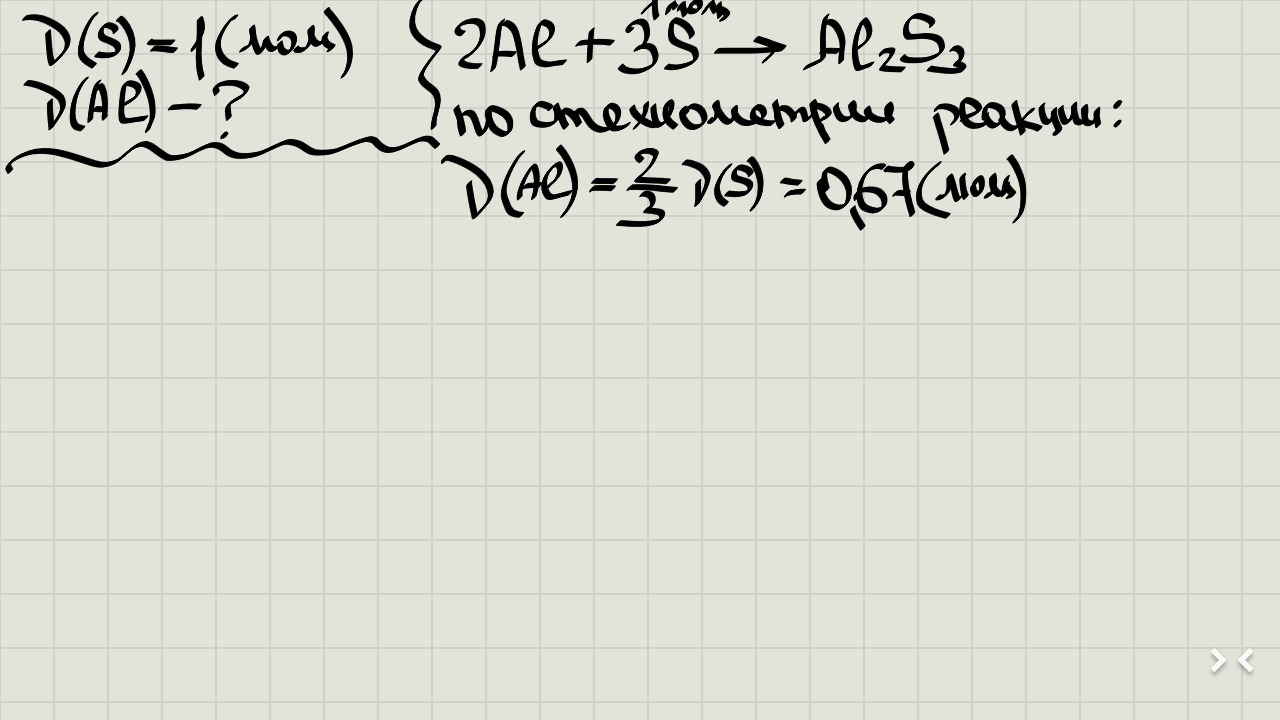 1 моль
ν(S) = 1 (моль)
ν(Al) – ?
2Al + 3S → Al₂S₃
по стехиометрии реакции:
ν(Al) = 2/3 ν(S) = 0,67 (моль)